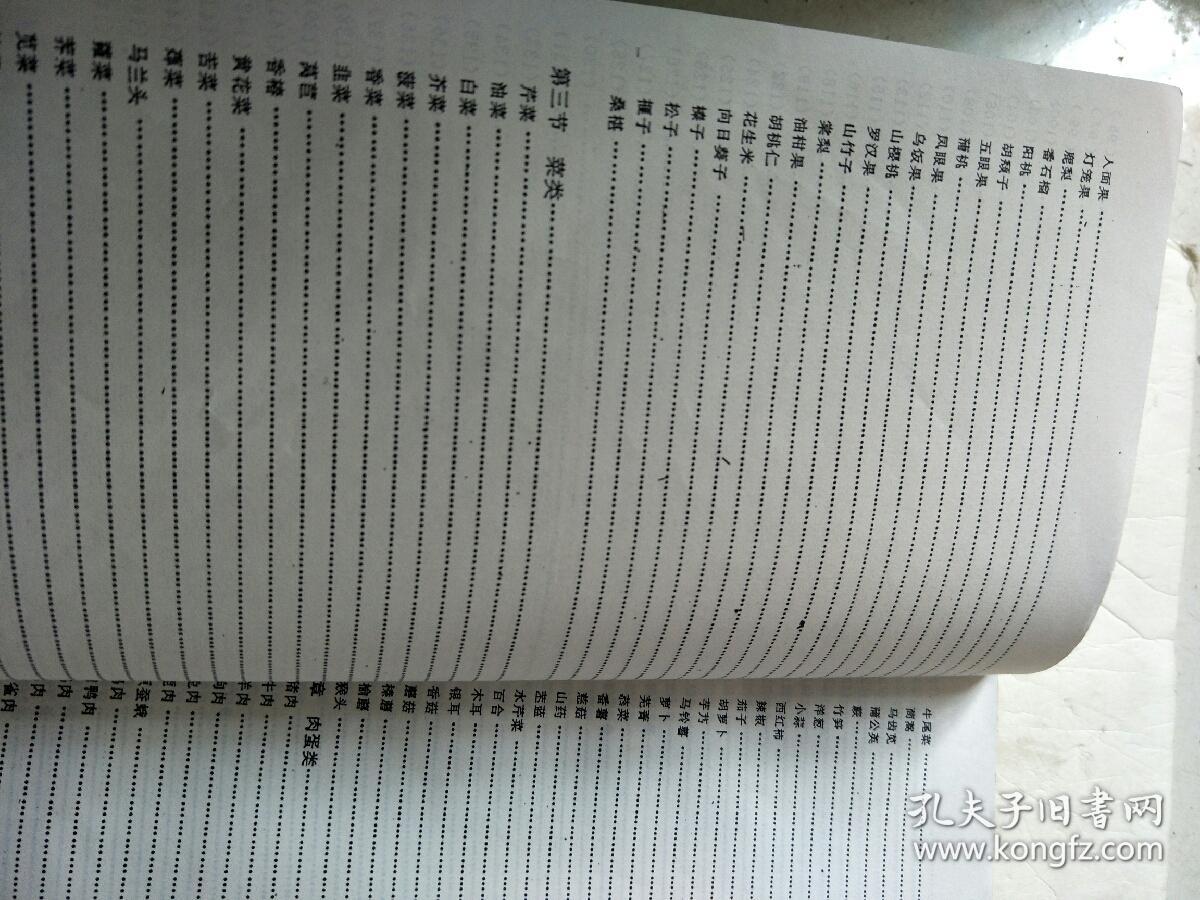 人面果
灯笼果
鹿梨
番石榴
阳桃
胡颓子
五眼果
蒲桃
凤眼果
乌饭果
山樱桃
罗汉果
山竹子
棠梨
油柑果
胡桃仁
花生米
向日葵子
榛子
松子
榧子
桑椹
第三节 菜类
芹菜
油菜
白菜
芥菜
菠菜
香菜
韭菜
莴苣
香椿
黄花菜
苦菜
莼菜
马兰头
蕹菜
荠菜
苋菜
牛尾菜
茼蒿
马齿苋
蒲公英
蕨
竹笋
洋葱
小蒜
西红柿
辣椒
茄子
胡萝卜
芋艿
马铃薯
萝卜
芜菁
慈菜
番薯
慈菇
山药
茎蓝
水芹菜
百合
木耳
银耳
香菇
蘑菇
榛蘑
榆蘑
猴头
章 肉蛋类
猪肉
牛肉
羊肉
狗肉
肉
肉
蚕蛾
肉
鸭肉
肉
肉
雀肉
孔夫子旧书网
www.kongfz.com